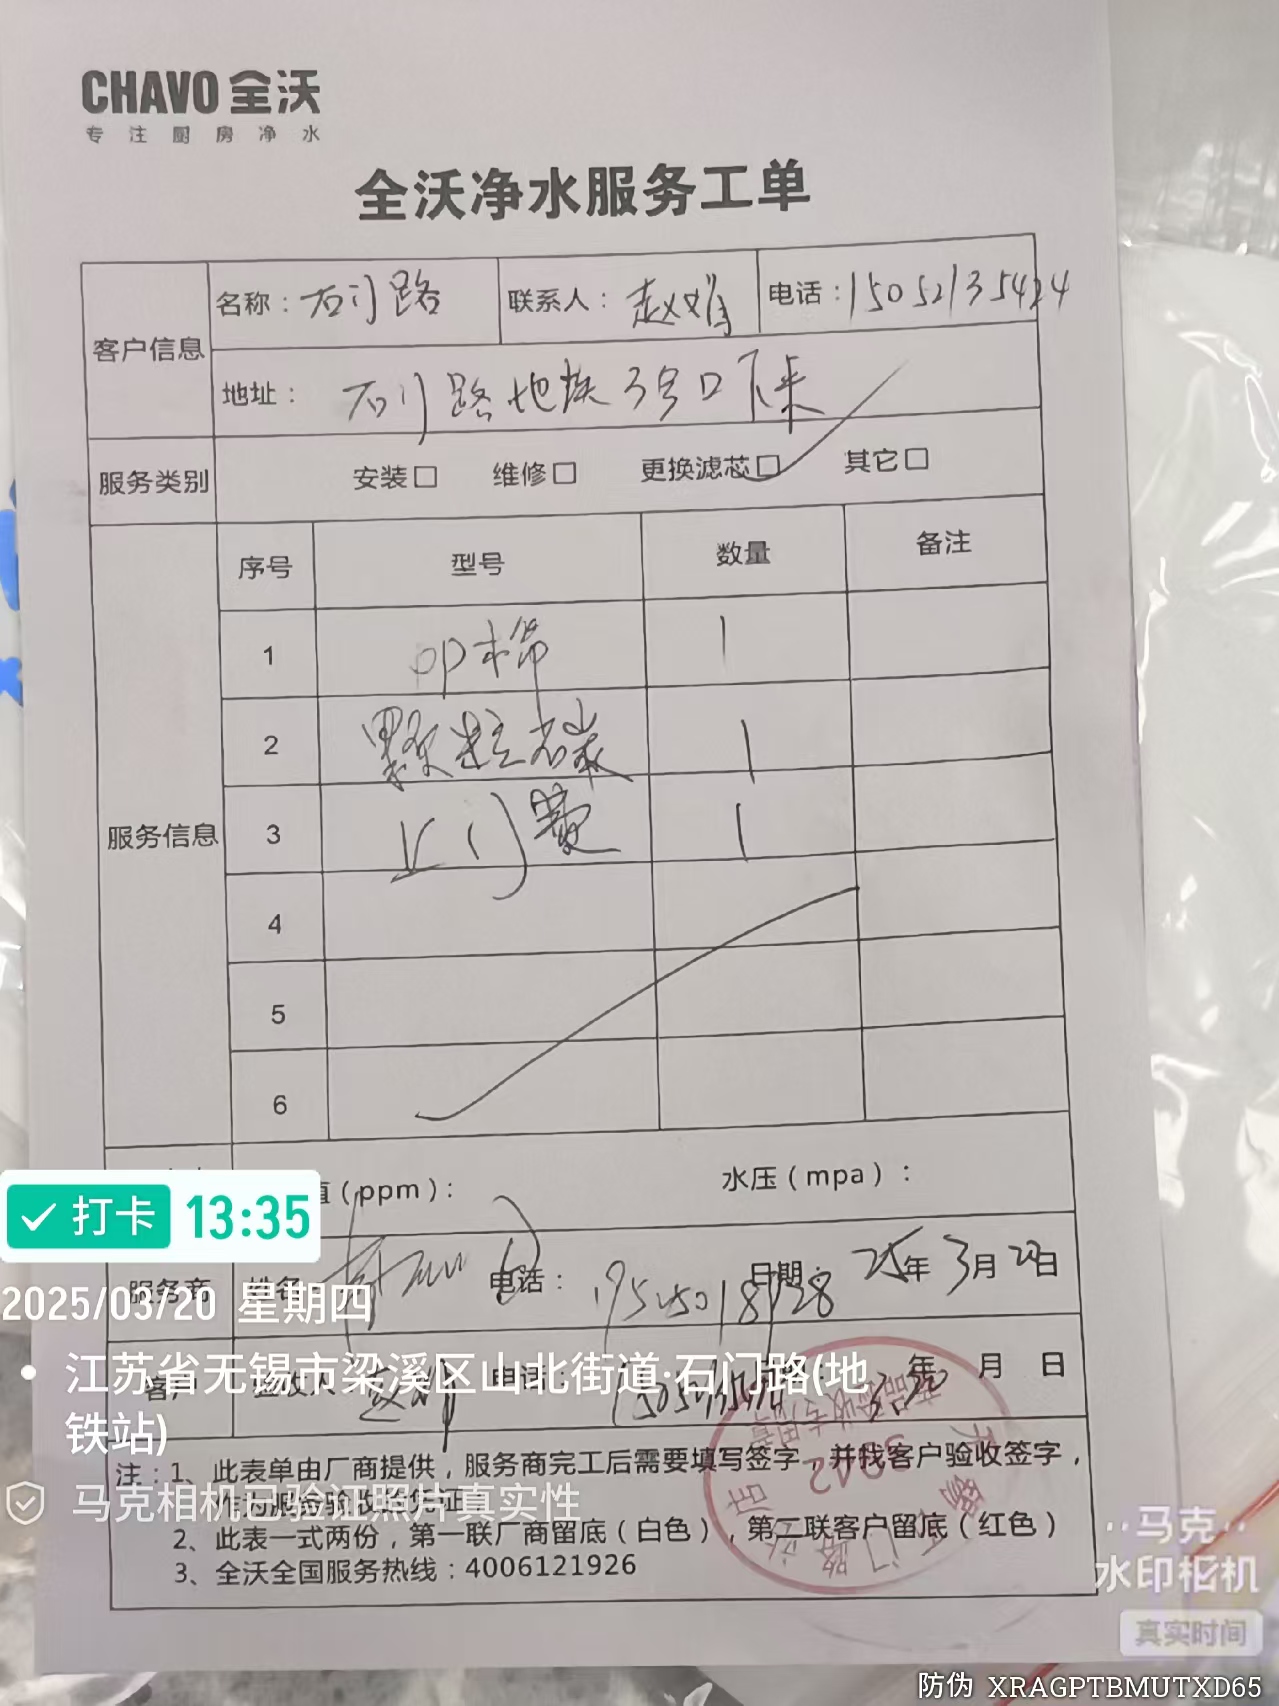 CHAVO 全沃
专注厨房净水
全沃净水服务工单
客户信息 名称：石门路 联系人：赵 电话：15052135424
地址：石门路地铁3号口下来
服务类别 安装□ 维修□ 更换滤芯□ 其它□
服务信息 序号 型号 数量 备注
1 PP棉 1
2 颗粒碳 1
3 上门费 1
4
5
6
值（ppm）： 水压（mpa）：
服务商 姓名 电话： 日期：25年3月20日
客户 电话： 3.20 年 月 日
注：1、此表单由厂商提供，服务商完工后需要填写签字，并找客户验收签字，
作为服务验收凭证
2、此表一式两份，第一联厂商留底（白色），第二联客户留底（红色）
3、全沃全国服务热线：4006121926
3942
打卡 13:35
2025/03/20 星期四
江苏省无锡市梁溪区山北街道·石门路(地
铁站)
马克相机已验证照片真实性
马克
水印相机
真实时间
防伪 XRAGPTBMUTXD65